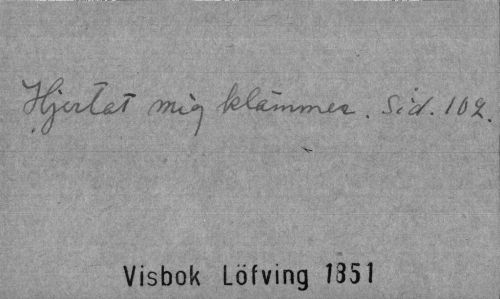 Hjertat mig klämmer. Sid. 102.
Visbok Löfving 1851